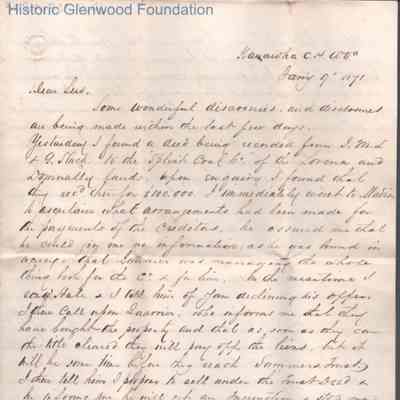 Historic Glenwood Foundation
Kanawha C.H. W Va
Jany 9th 1871
Dear Sir.
Some wonderful discoveries and disclosures
are being made within the last few days.
Yesterday I found a deed being recorded from J. M. L
& G. to the Splint Coal Co. of the and
lands. upon enquiry I found that
they recd then for $100.000. I immediately went to
to ascertain what arrangements had been made for
the payments of the Creditors. he assured me that
he could give me no information, as he was bound in
that was managing the whole
thing for the Co. & for him. In the meantime I
Hale & I told him of your declining his offer
I then Call upon who informs me that they
have bought the property and that as soon as they can
the title cleared they will pay off the liens. but it
will be some time before they reach Summers trust
I then tell him I propose to sell under the trust deed &
he informs me he will an Injunction &